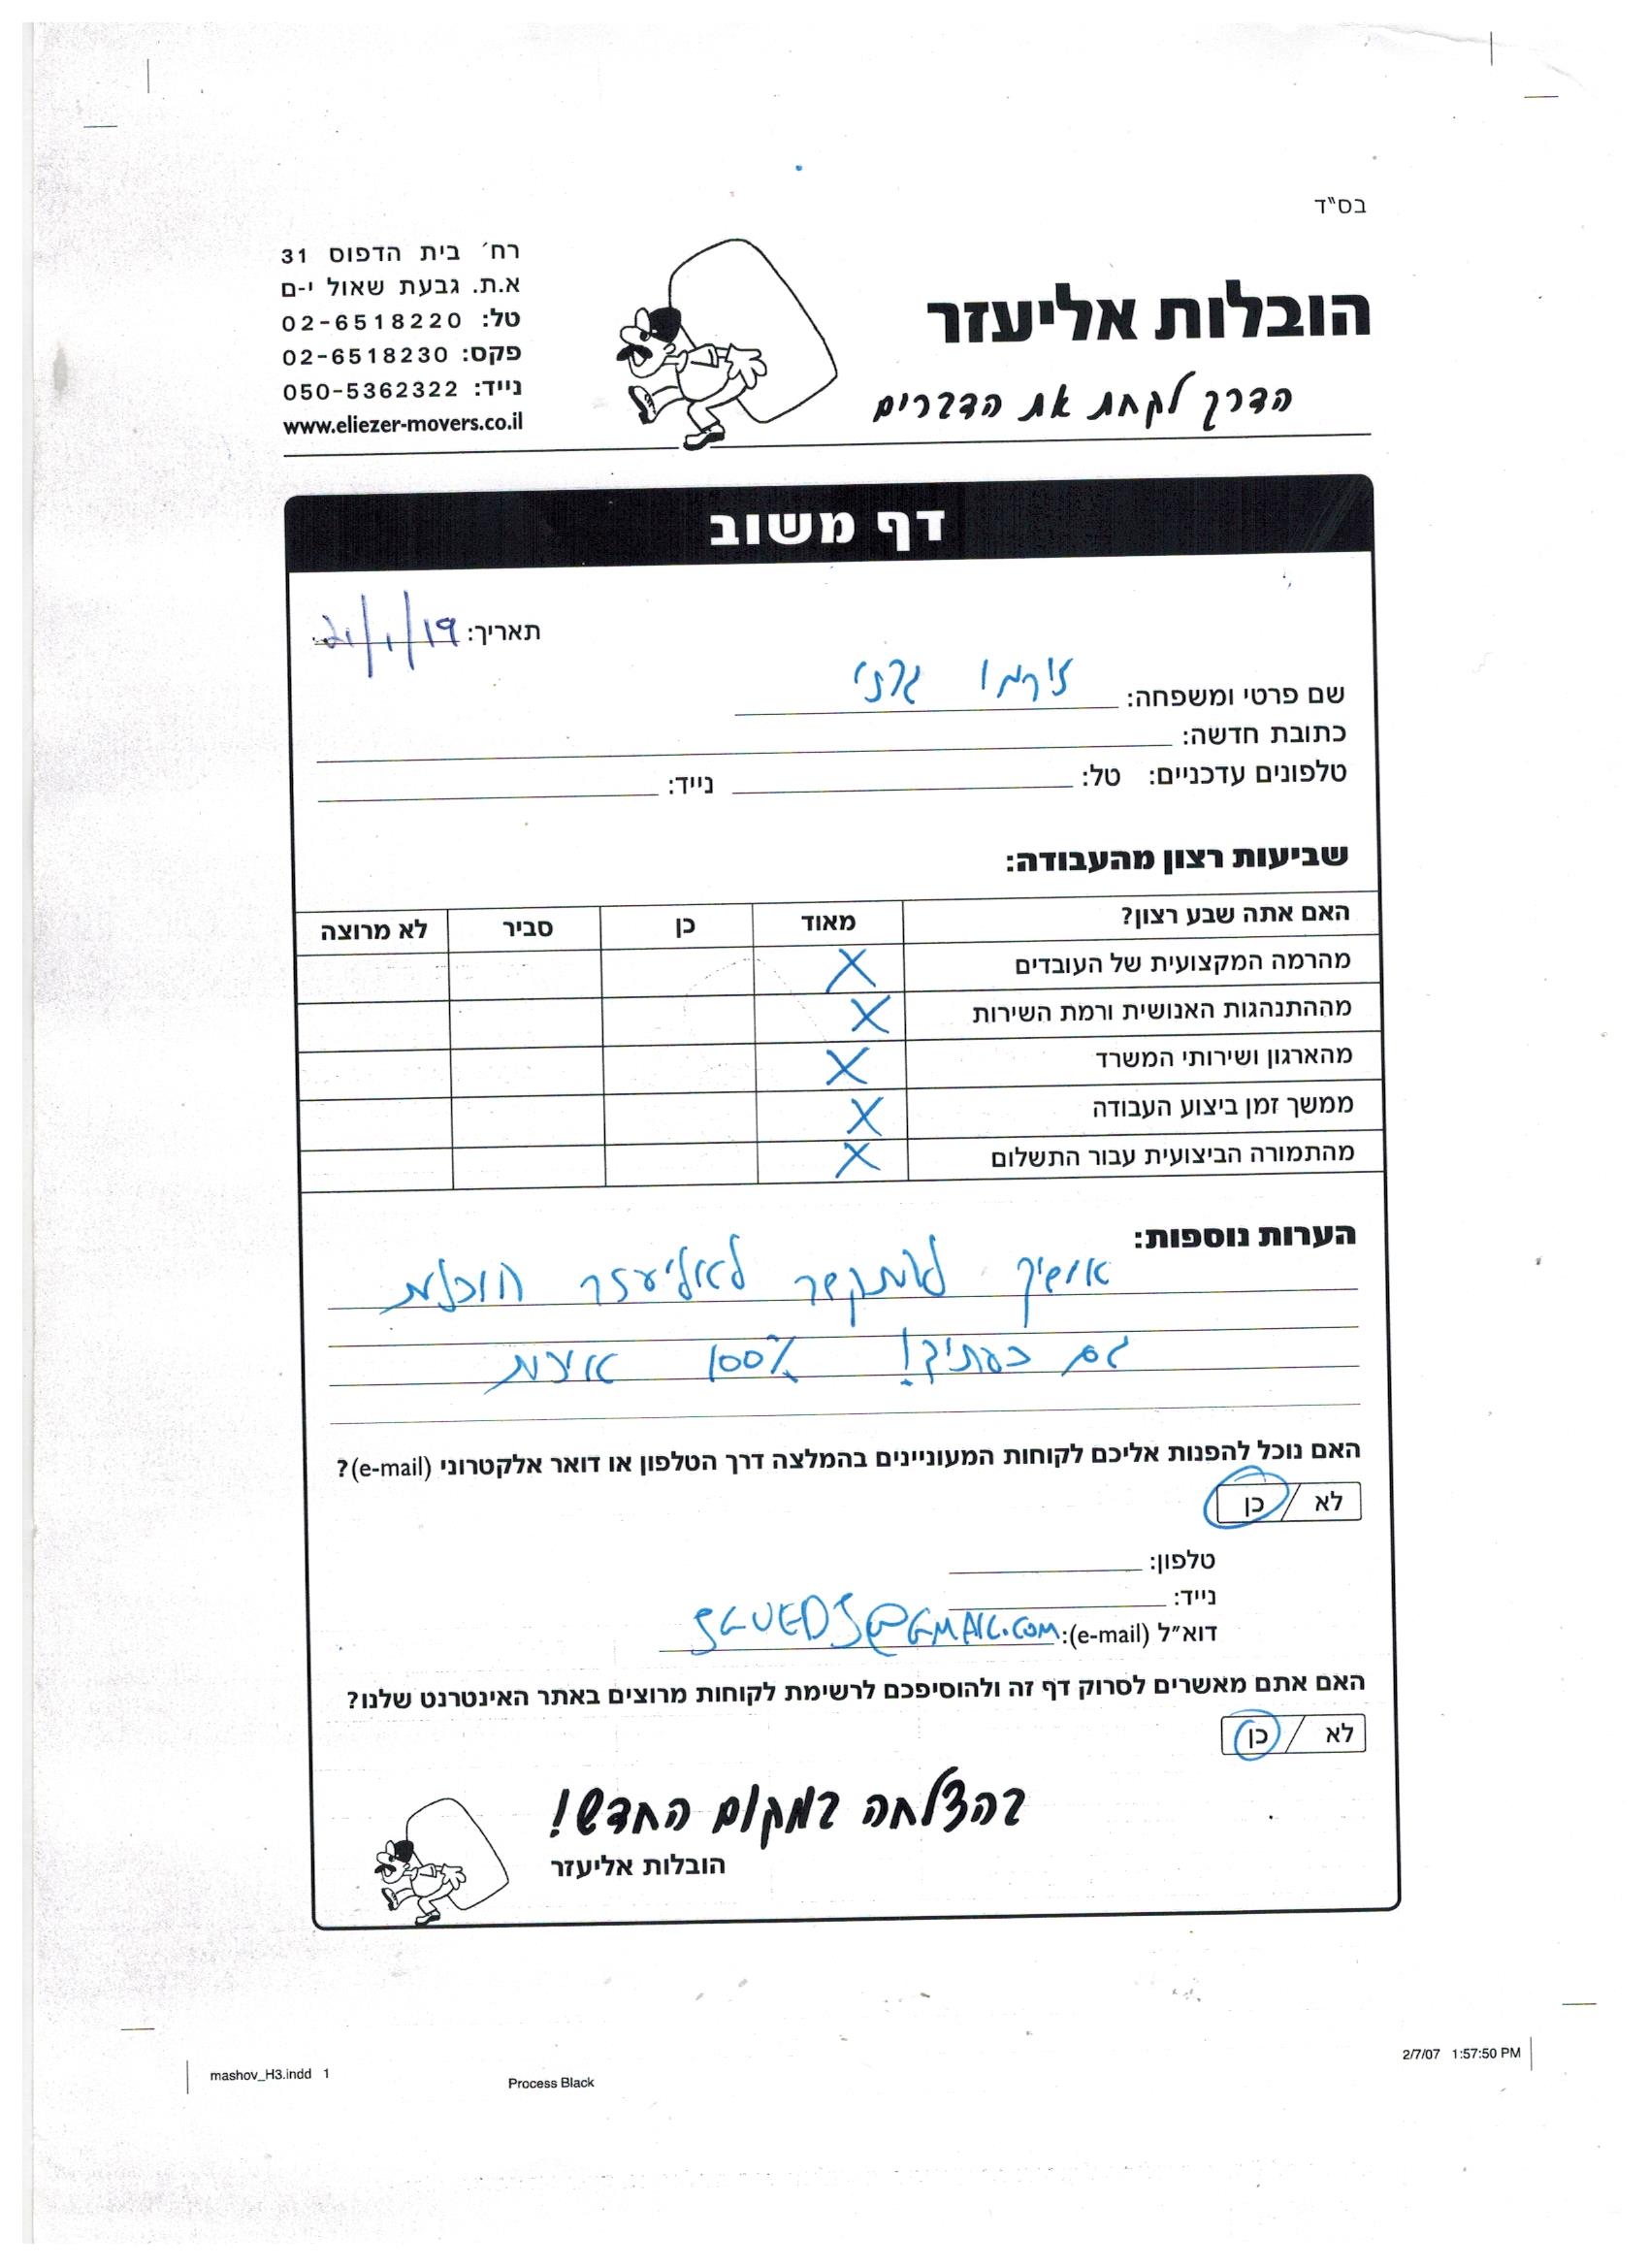 בס"ד
הובלות אליעזר
הדרך לקחת את הדברים
רח׳ בית הדפוס 31
א.ת. גבעת שאול י-ם
טל: 02-6518220
פקס: 02-6518230
נייד: 050-5362322
www.eliezer-movers.co.il
דף משוב
תאריך: 21/1/19
שם פרטי ומשפחה:
כתובת חדשה:
טלפונים עדכניים: טל: נייד:
שביעות רצון מהעבודה:
האם אתה שבע רצון? מאוד כן סביר לא מרוצה
מהרמה המקצועית של העובדים X
מההתנהגות האנושית ורמת השירות X
מהארגון ושירותי המשרד X
ממשך זמן ביצוע העבודה X
מהתמורה הביצועית עבור התשלום X
הערות נוספות:
אמשיך להתקשר לאליעזר הובלות
גם בעתיד! 100% איכות
האם נוכל להפנות אליכם לקוחות המעוניינים בהמלצה דרך הטלפון או דואר אלקטרוני (e-mail)?
לא / כן
טלפון:
נייד:
דוא"ל (e-mail): SGUEDJ@GMAIL.COM
האם אתם מאשרים לסרוק דף זה ולהוסיפכם לרשימת לקוחות מרוצים באתר האינטרנט שלנו?
לא / כן
בהצלחה במקום החדש!
הובלות אליעזר
mashov_H3.indd 1
Process Black
2/7/07 1:57:50 PM